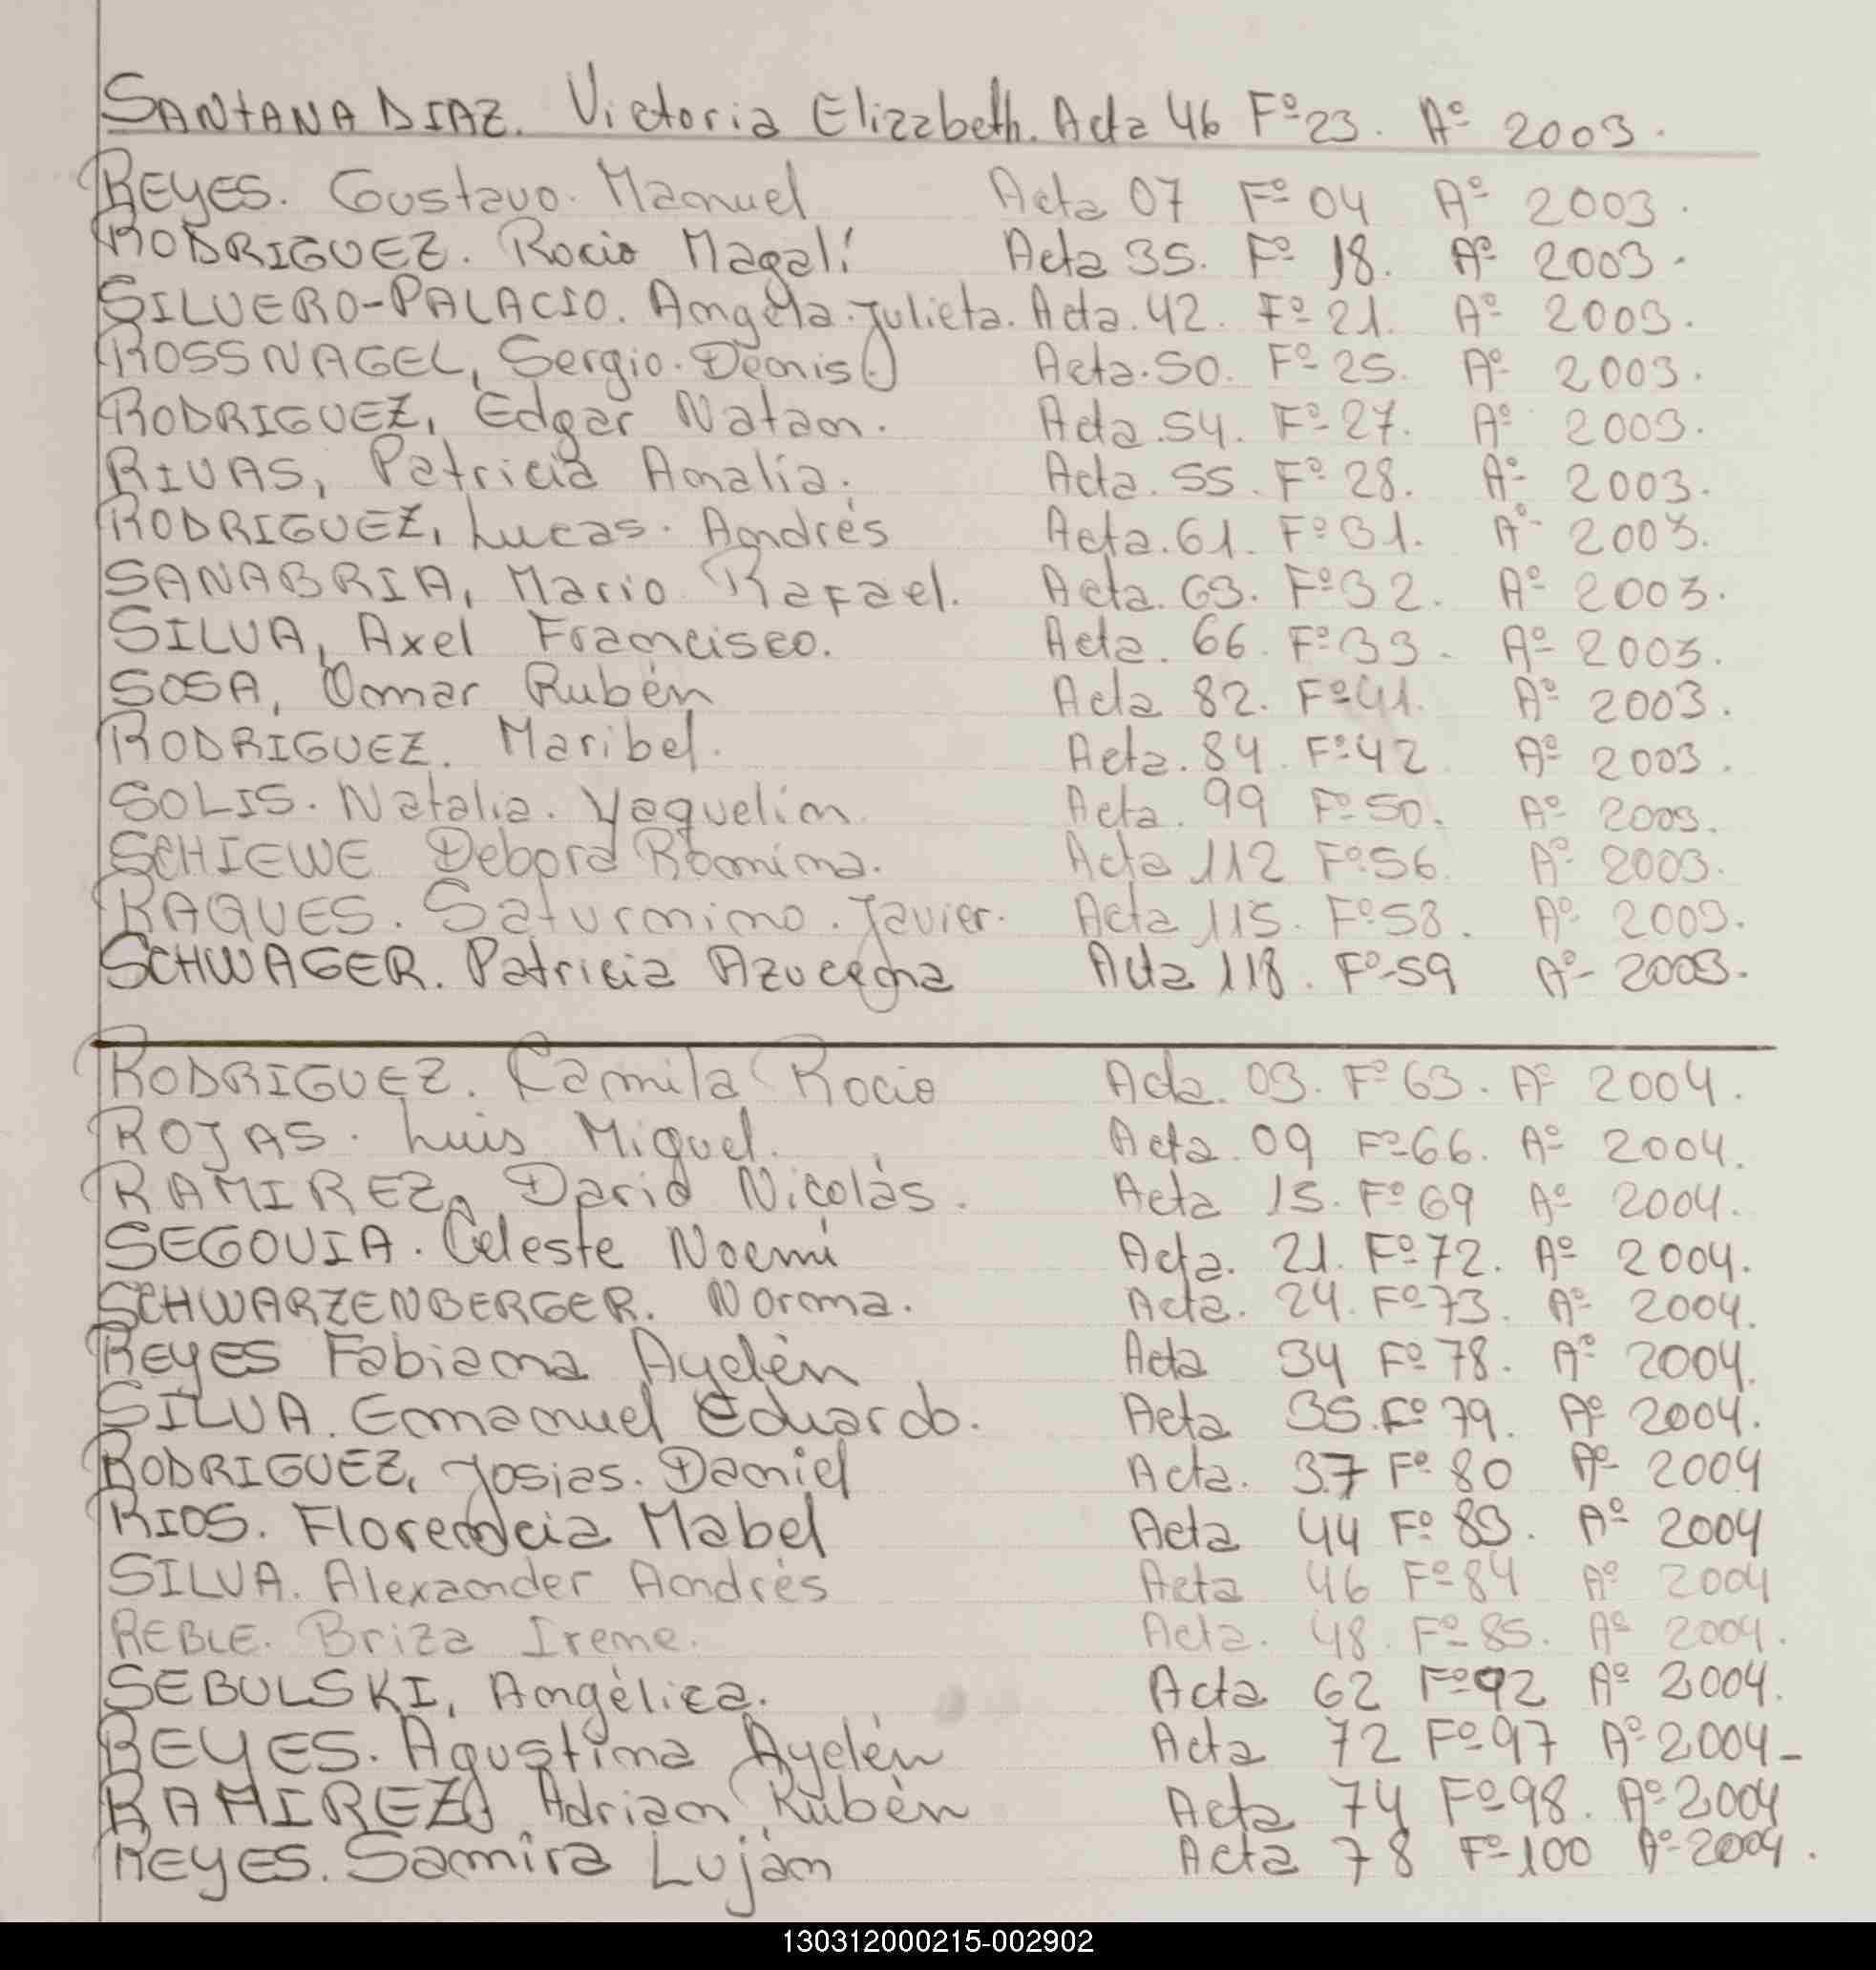 SANTANA DIAZ. Victoria Elizabeth. Acta 46 Fº 23. Aº 2003.
REYES. Gustavo. Manuel Acta 07 Fº 04 Aº 2003.
RODRIGUEZ. Rocio Magalí Acta 35. Fº 18. Aº 2003.
SILVERO-PALACIO. Angela. Julieta. Acta. 42. Fº 21. Aº 2003.
ROSSNAGEL, Sergio. Denis. Acta. 50. Fº 25. Aº 2003.
RODRIGUEZ, Edgar Natan. Acta. 54. Fº 27. Aº 2003.
RIVAS, Patricia Analía. Acta. 55. Fº 28. Aº 2003.
RODRIGUEZ, Lucas. Andrés Acta. 61. Fº 31. Aº 2003.
SANABRIA, Mario Rafael. Acta. 63. Fº 32. Aº 2003.
SILVA, Axel Francisco. Acta. 66. Fº 33. Aº 2003.
SOSA, Omar Rubén Acta 82. Fº 41. Aº 2003.
RODRIGUEZ. Maribel. Acta. 84. Fº 42 Aº 2003.
SOLIS. Natalia. Yaquelin Acta. 99 Fº 50. Aº 2003.
SCHIEWE Debora Romina. Acta 112 Fº 56. Aº 2003.
RAQUES. Saturnino. Javier. Acta 115. Fº 58. Aº 2003.
SCHWAGER. Patricia Azucena Acta 118. Fº 59 Aº 2003.
RODRIGUEZ. Camila Rocio Acta. 03. Fº 63. Aº 2004.
ROJAS. Luis Miguel. Acta. 09 Fº 66. Aº 2004.
RAMIREZ, Dario Nicolás. Acta 15. Fº 69 Aº 2004.
SEGOVIA. Celeste Noemí Acta. 21. Fº 72. Aº 2004.
SCHWARZENBERGER. Norma. Acta. 24. Fº 73. Aº 2004.
REYES Fabiana Ayelén Acta 34 Fº 78. Aº 2004.
SILVA. Emmanuel Eduardo. Acta 35. Fº 79. Aº 2004.
RODRIGUEZ, Josias. Daniel Acta. 37 Fº 80 Aº 2004
RIOS. Florencia Mabel Acta 44 Fº 83. Aº 2004
SILVA. Alexander Andrés Acta 46 Fº 84 Aº 2004
REBLE. Briza Irene. Acta. 48. Fº 85. Aº 2004.
SEBULSKI, Angélica. Acta 62 Fº 92 Aº 2004.
REYES. Agustina Ayelén Acta 72 Fº 97 Aº 2004-
RAMIREZ, Adrian Rubén Acta 74 Fº 98. Aº 2004
REYES. Samira Luján Acta 78 Fº 100 Aº 2004.
130312000215-002902